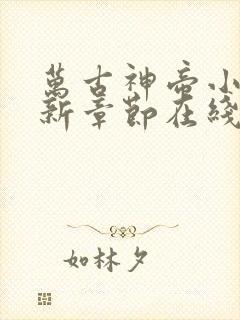 萬古神帝小
新章節在綫
如林夕